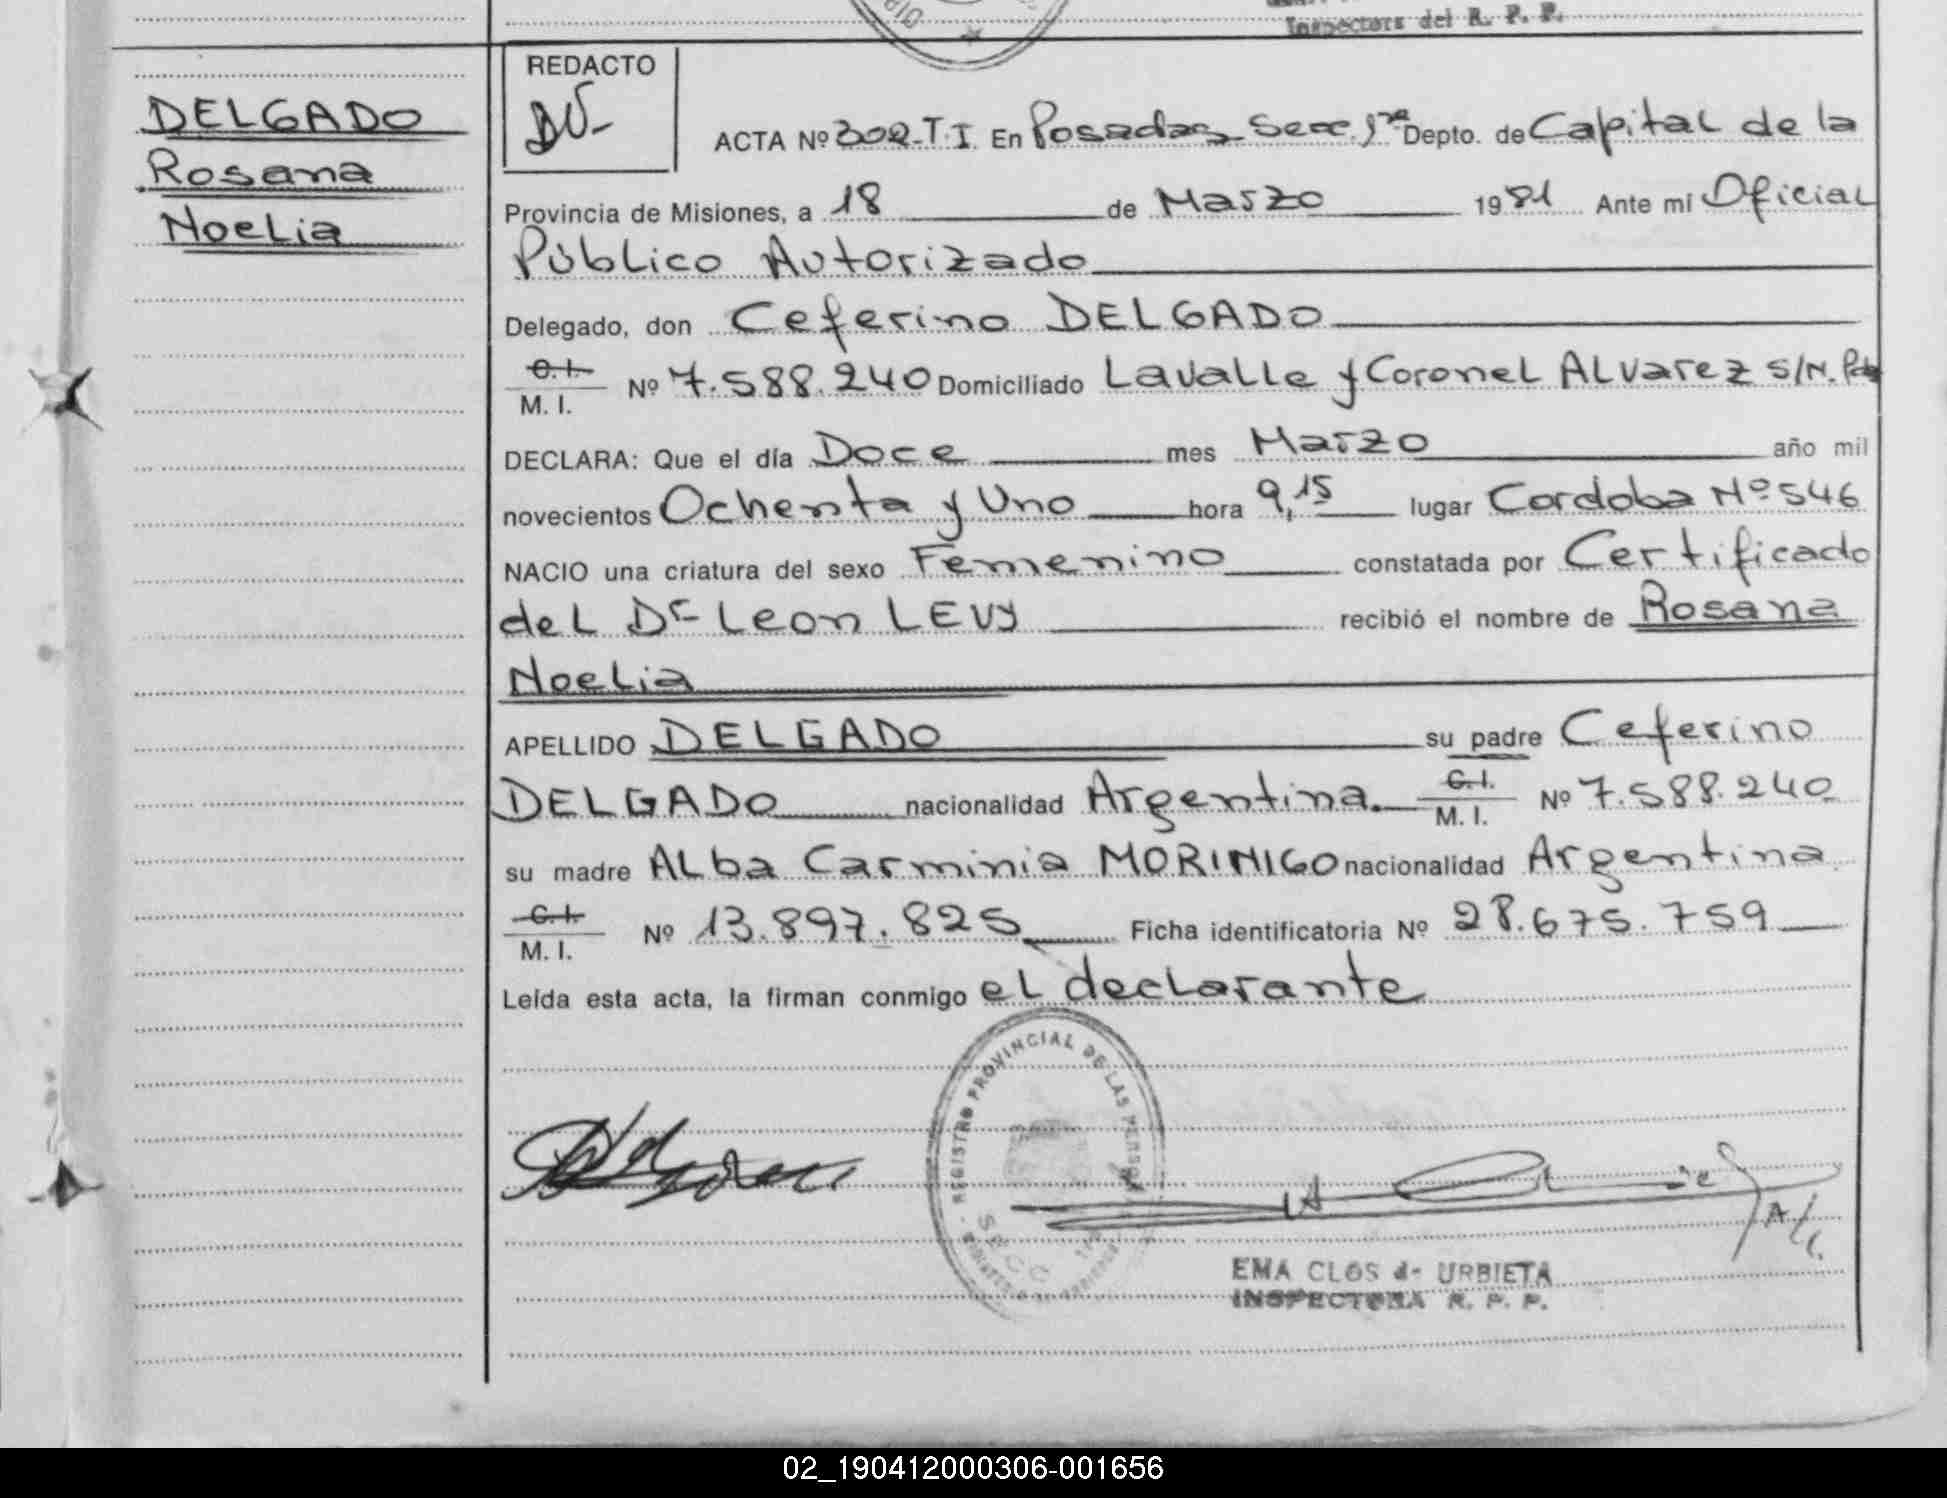 Inspectora del R. P. P.
DELGADO
Rosana
Noelia
REDACTO
ACTA Nº 302-T.I. En Posadas Secc. 1ra Depto. de Capital de la
Provincia de Misiones, a 18 de Marzo 1981 Ante mi Oficial
Público Autorizado
Delegado, don Ceferino DELGADO
C. I.
M. I. Nº 7.588.240 Domiciliado Lavalle y Coronel ALvarez S/N.
DECLARA: Que el día Doce mes Marzo año mil
novecientos Ochenta y Uno hora 9,15 lugar Cordoba Nº 546
NACIO una criatura del sexo Femenino constatada por Certificado
deL Dr Leon LEVY recibió el nombre de Rosana
Noelia
APELLIDO DELGADO su padre Ceferino
DELGADO nacionalidad Argentina. C. I.
M. I. Nº 7.588.240
su madre ALba Carminia MORINIGO nacionalidad Argentina
C. I.
M. I. Nº 13.897.825 Ficha identificatoria Nº 28.675.759
Leída esta acta, la firman conmigo eL decLarante
REGISTRO PROVINCIAL DE LAS PERSONAS
SECC
EMA CLOS de URBIETA
INSPECTORA R. P. P.
02_190412000306-001656